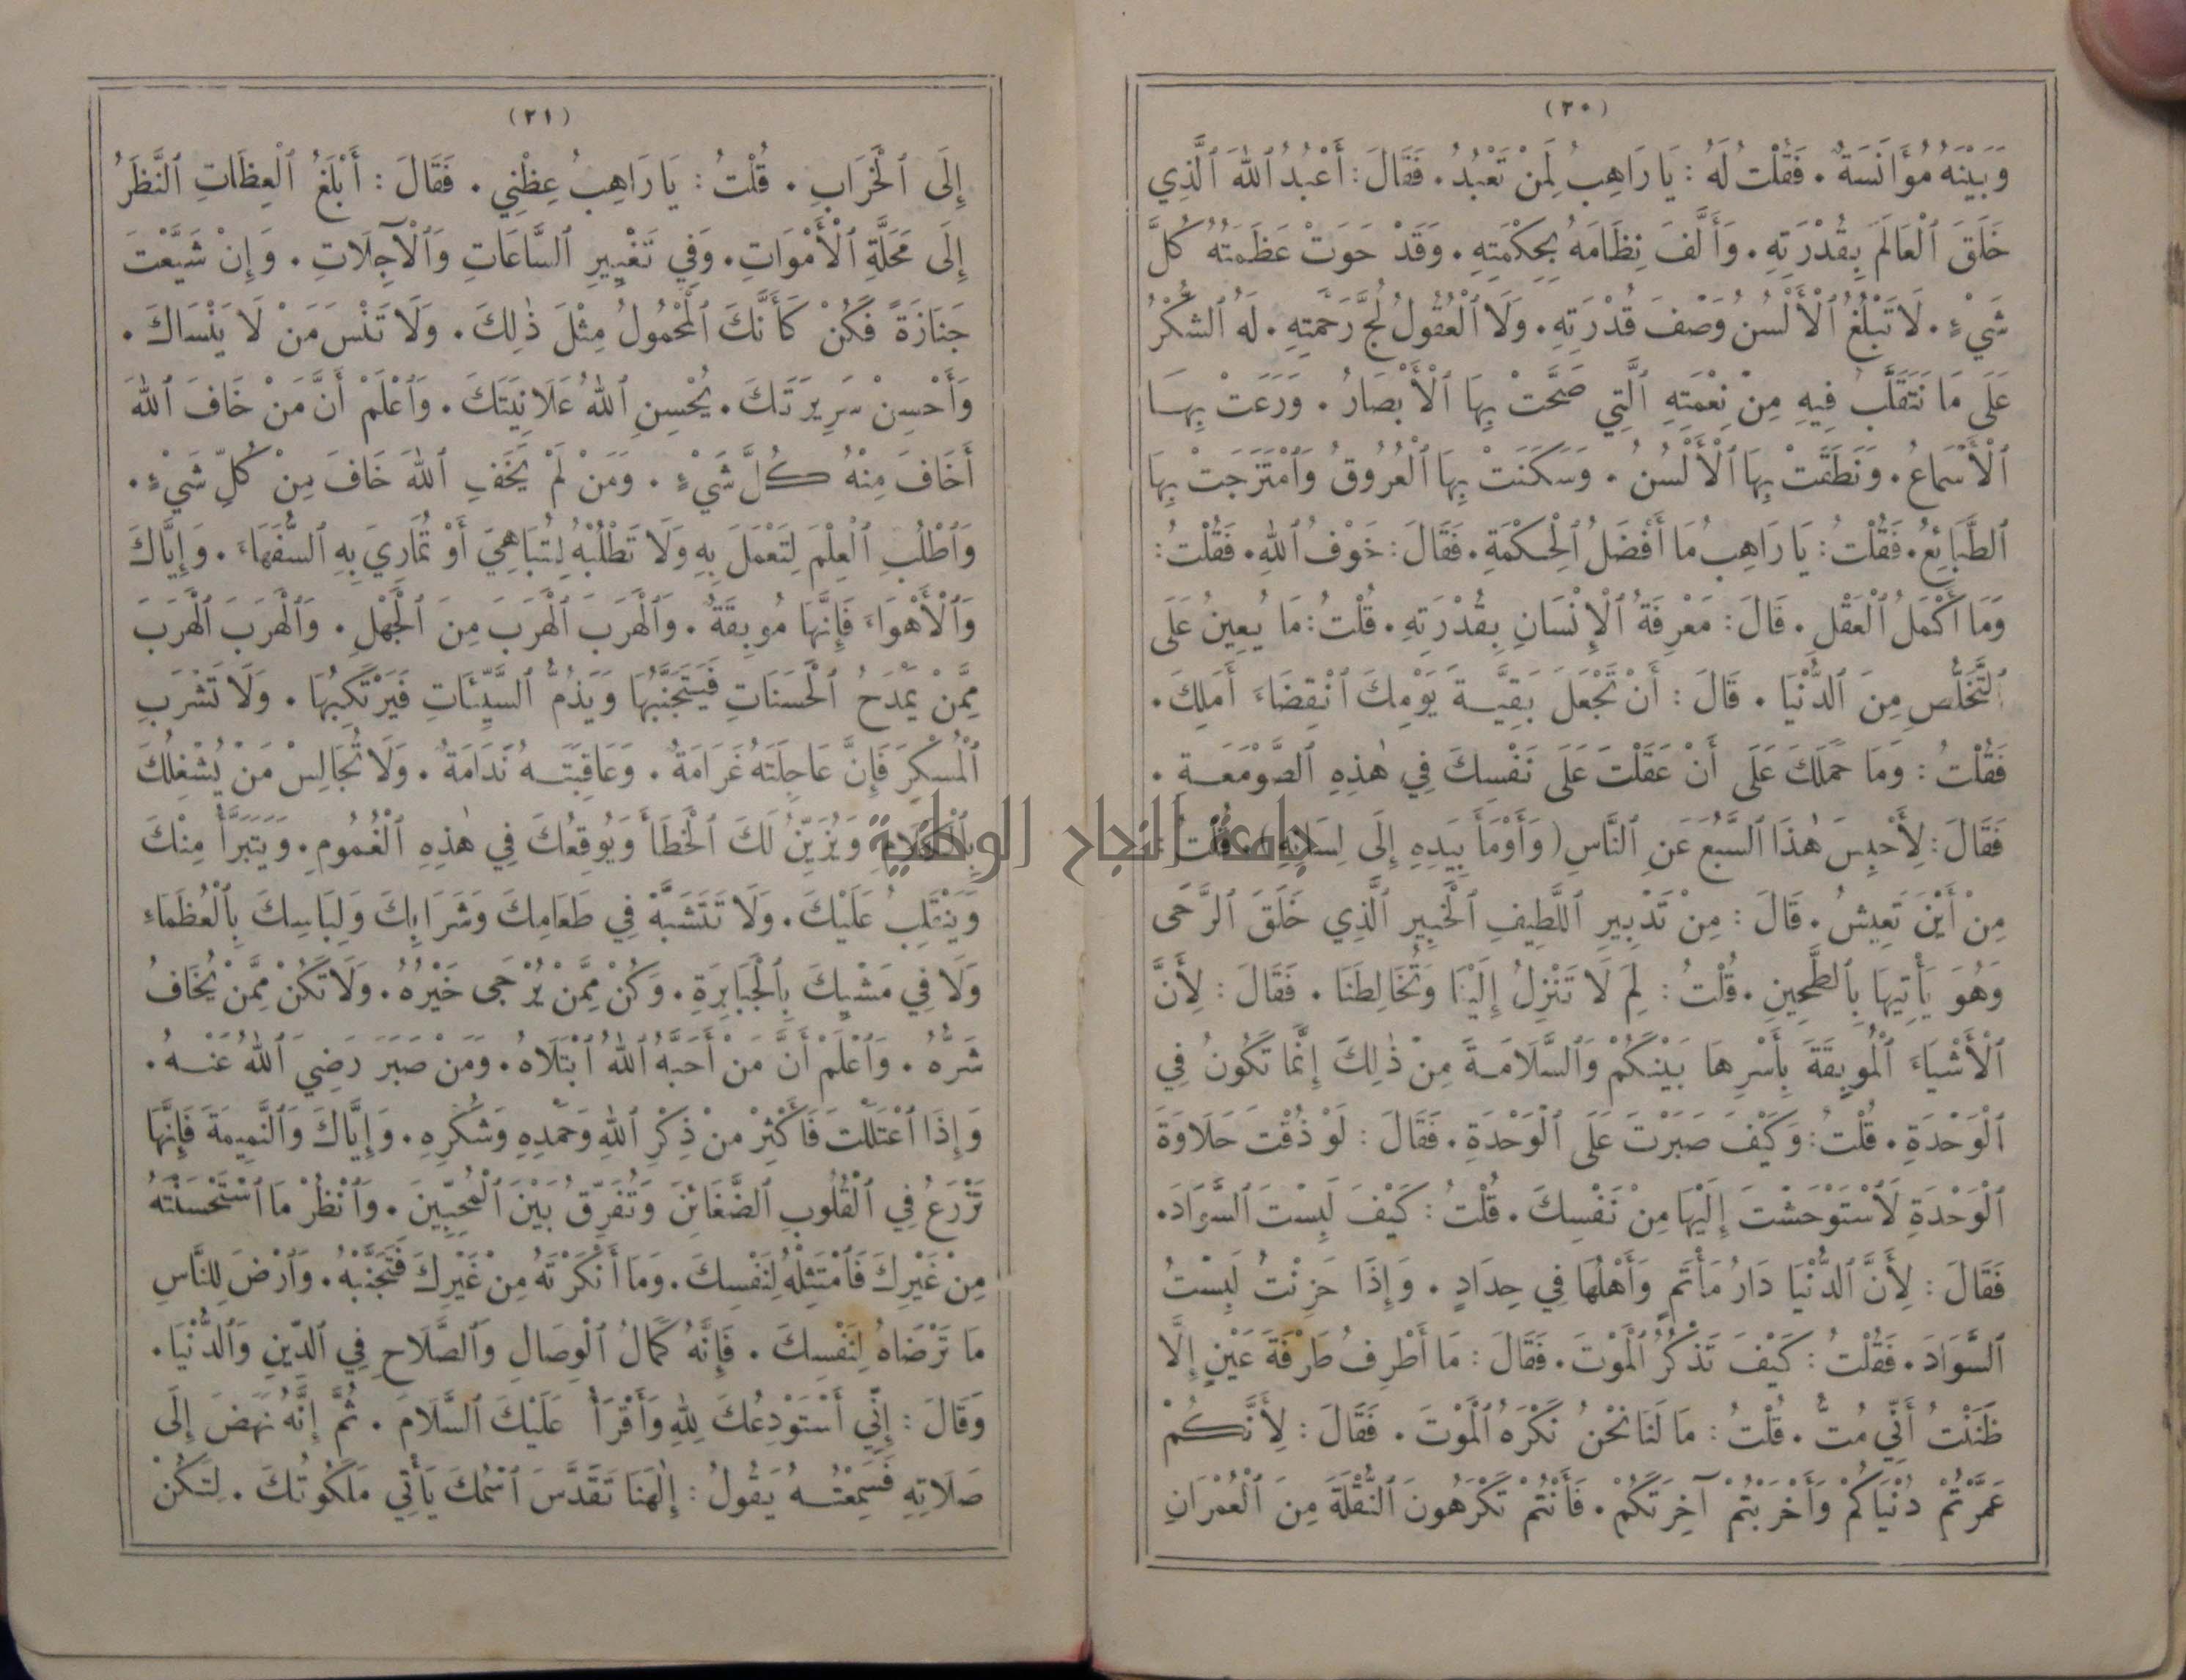 (٢٠)
وَبَيْنَهُ مُؤَانَسَةٌ. فَقُلْتُ لَهُ: يَا رَاهِبُ لِمَنْ تَعْبُدُ. فَقَالَ: أَعْبُدُ ٱللهَ ٱلَّذِي
خَلَقَ ٱلْعَالَمَ بِقُدْرَتِهِ. وَأَلَّفَ نِظَامَهُ بِحِكْمَتِهِ. وَقَدْ حَوَتْ عَظَمَتُهُ كُلَّ
شَيْءٍ. لَا تَبْلُغُ ٱلْأَلْسُنُ وَصْفَ قُدْرَتِهِ. وَلَا ٱلْعُقُولُ لُجَّ رَحْمَتِهِ. لَهُ ٱلشُّكْرُ
عَلَى مَا نَتَقَلَّبُ فِيهِ مِنْ نِعْمَتِهِ ٱلَّتِي صَحَّتْ بِهَا ٱلْأَبْصَارُ. وَرَعَتْ بِهَا
ٱلْأَسْمَاعُ. وَنَطَقَتْ بِهَا ٱلْأَلْسُنُ. وَسَكَنَتْ بِهَا ٱلْعُرُوقُ وَٱمْتَزَجَتْ بِهَا
ٱلطَّبَائِعُ. فَقُلْتُ: يَا رَاهِبُ مَا أَفْضَلُ ٱلْحِكْمَةِ. فَقَالَ: خَوْفُ ٱللهِ. فَقُلْتُ:
وَمَا أَكْمَلُ ٱلْعَقْلِ. قَالَ: مَعْرِفَةُ ٱلْإِنْسَانِ بِقُدْرَتِهِ. قُلْتُ: مَا يُعِينُ عَلَى
ٱلتَّخَلُّصِ مِنَ ٱلدُّنْيَا. قَالَ: أَنْ تَجْعَلَ بَقِيَّةَ يَوْمِكَ ٱنْقِضَاءَ أَمَلِكَ.
فَقُلْتُ: وَمَا حَمَلَكَ عَلَى أَنْ عَقَلْتَ عَلَى نَفْسِكَ فِي هٰذِهِ ٱلصَّوْمَعَةِ.
فَقَالَ: لِأَحْبِسَ هٰذَا ٱلسَّبُعَ عَنِ ٱلنَّاسِ (وَأَوْمَأَ بِيَدِهِ إِلَى لِسَانِهِ) قُلْتُ:
مِنْ أَيْنَ تَعِيشُ. قَالَ: مِنْ تَدْبِيرِ ٱللَّطِيفِ ٱلْخَبِيرِ ٱلَّذِي خَلَقَ ٱلرَّحَى
وَهُوَ يَأْتِيهَا بِٱلطَّحِينِ. قُلْتُ: لِمَ لَا تَنْزِلُ إِلَيْنَا وَتُخَالِطَنَا. فَقَالَ: لِأَنَّ
ٱلْأَشْيَاءَ ٱلْمُوبِقَةَ بِأَسْرِهَا بَيْنَكُمْ وَٱلسَّلَامَةَ مِنْ ذٰلِكَ إِنَّمَا تَكُونُ فِي
ٱلْوَحْدَةِ. قُلْتُ: وَكَيْفَ صَبَرْتَ عَلَى ٱلْوَحْدَةِ. فَقَالَ: لَوْ ذُقْتَ حَلَاوَةَ
ٱلْوَحْدَةِ لَٱسْتَوْحَشْتَ إِلَيْهَا مِنْ نَفْسِكَ. قُلْتُ: كَيْفَ لَبِسْتَ ٱلسَّوَادَ.
فَقَالَ: لِأَنَّ ٱلدُّنْيَا دَارُ مَأْتَمٍ وَأَهْلُهَا فِي حِدَادٍ. وَإِذَا حَزِنْتُ لَبِسْتُ
ٱلسَّوَادَ. فَقُلْتُ: كَيْفَ تَذْكُرُ ٱلْمَوْتَ. فَقَالَ: مَا أَطْرِفُ طَرْفَةَ عَيْنٍ إِلَّا
ظَنَنْتُ أَنِّي مُتُّ. قُلْتُ: مَا لَنَا نَحْنُ نَكْرَهُ ٱلْمَوْتَ. فَقَالَ: لِأَنَّكُمْ
عَمَّرْتُمْ دُنْيَاكُمْ وَأَخْرَبْتُمْ آخِرَتَكُمْ. فَأَنْتُمْ تَكْرَهُونَ ٱلنُّقْلَةَ مِنَ ٱلْعُمْرَانِ
(٢١)
إِلَى ٱلْخَرَابِ. قُلْتُ: يَا رَاهِبُ عِظْنِي. فَقَالَ: أَبْلَغُ ٱلْعِظَاتِ ٱلنَّظَرُ
إِلَى مَحَلَّةِ ٱلْأَمْوَاتِ. وَفِي تَغْيِيرِ ٱلسَّاعَاتِ وَٱلْآجِلَاتِ. وَإِنْ شَيَّعْتَ
جَنَازَةً فَكُنْ كَأَنَّكَ ٱلْمَحْمُولُ مِثْلَ ذٰلِكَ. وَلَا تَنْسَ مَنْ لَا يَنْسَاكَ.
وَأَحْسِنْ سَرِيرَتَكَ. يُحْسِنِ ٱللهُ عَلَانِيَتَكَ. وَٱعْلَمْ أَنَّ مَنْ خَافَ ٱللهَ
أَخَافَ مِنْهُ كُلَّ شَيْءٍ. وَمَنْ لَمْ يَخَفِ ٱللهَ خَافَ مِنْ كُلِّ شَيْءٍ.
وَٱطْلُبِ ٱلْعِلْمَ لِتَعْمَلَ بِهِ وَلَا تَطْلُبْهُ لِتُبَاهِيَ أَوْ تُمَارِيَ بِهِ ٱلسُّفَهَاءَ. وَإِيَّاكَ
وَٱلْأَهْوَاءَ فَإِنَّهَا مُوبِقَةٌ. وَٱلْهَرَبَ ٱلْهَرَبَ مِنَ ٱلْجَهْلِ. وَٱلْهَرَبَ ٱلْهَرَبَ
مِمَّنْ يَمْدَحُ ٱلْحَسَنَاتِ فَيَتَجَنَّبُهَا وَيَذُمُّ ٱلسَّيِّئَاتِ فَيَرْتَكِبُهَا. وَلَا تَشْرَبِ
ٱلْمُسْكِرَ فَإِنَّ عَاجِلَتَهُ غَرَامَةٌ. وَعَاقِبَتَهُ نَدَامَةٌ. وَلَا تُجَالِسْ مَنْ يُشْغِلُكَ
بِٱلْكَلَامِ وَيُزَيِّنُ لَكَ ٱلْخَطَأَ وَيُوقِعُكَ فِي هٰذِهِ ٱلْغُمُومِ. وَيَتَبَرَّأُ مِنْكَ
وَيَنْقَلِبُ عَلَيْكَ. وَلَا تَتَشَبَّهْ فِي طَعَامِكَ وَشَرَابِكَ وَلِبَاسِكَ بِٱلْعُظَمَاءِ
وَلَا فِي مَشْيِكَ بِٱلْجَبَابِرَةِ. وَكُنْ مِمَّنْ يُرْجَى خَيْرُهُ. وَلَا تَكُنْ مِمَّنْ يُخَافُ
شَرُّهُ. وَٱعْلَمْ أَنَّ مَنْ أَحَبَّهُ ٱللهُ ٱبْتَلَاهُ. وَمَنْ صَبَرَ رَضِيَ ٱللهُ عَنْهُ.
وَإِذَا ٱعْتَلَلْتَ فَأَكْثِرْ مِنْ ذِكْرِ ٱللهِ وَحَمْدِهِ وَشُكْرِهِ. وَإِيَّاكَ وَٱلنَّمِيمَةَ فَإِنَّهَا
تَزْرَعُ فِي ٱلْقُلُوبِ ٱلضَّغَائِنَ وَتُفَرِّقُ بَيْنَ ٱلْمُحِبِّينَ. وَٱنْظُرْ مَا ٱسْتَحْسَنْتَهُ
مِنْ غَيْرِكَ فَٱمْتَثِلْهُ لِنَفْسِكَ. وَمَا أَنْكَرْتَهُ مِنْ غَيْرِكَ فَتَجَنَّبْهُ. وَٱرْضَ لِلنَّاسِ
مَا تَرْضَاهُ لِنَفْسِكَ. فَإِنَّهُ كَمَالُ ٱلْوِصَالِ وَٱلصَّلَاحِ فِي ٱلدِّينِ وَٱلدُّنْيَا.
وَقَالَ: إِنِّي أَسْتَوْدِعُكَ لِلهِ وَأَقْرَأُ عَلَيْكَ ٱلسَّلَامَ. ثُمَّ إِنَّهُ نَهَضَ إِلَى
صَلَاتِهِ فَسَمِعْتُهُ يَقُولُ: إِلٰهَنَا تَقَدَّسَ ٱسْمُكَ يَأْتِي مَلَكُوتُكَ. لِتَكُنْ
جامعة النجاح الوطنية